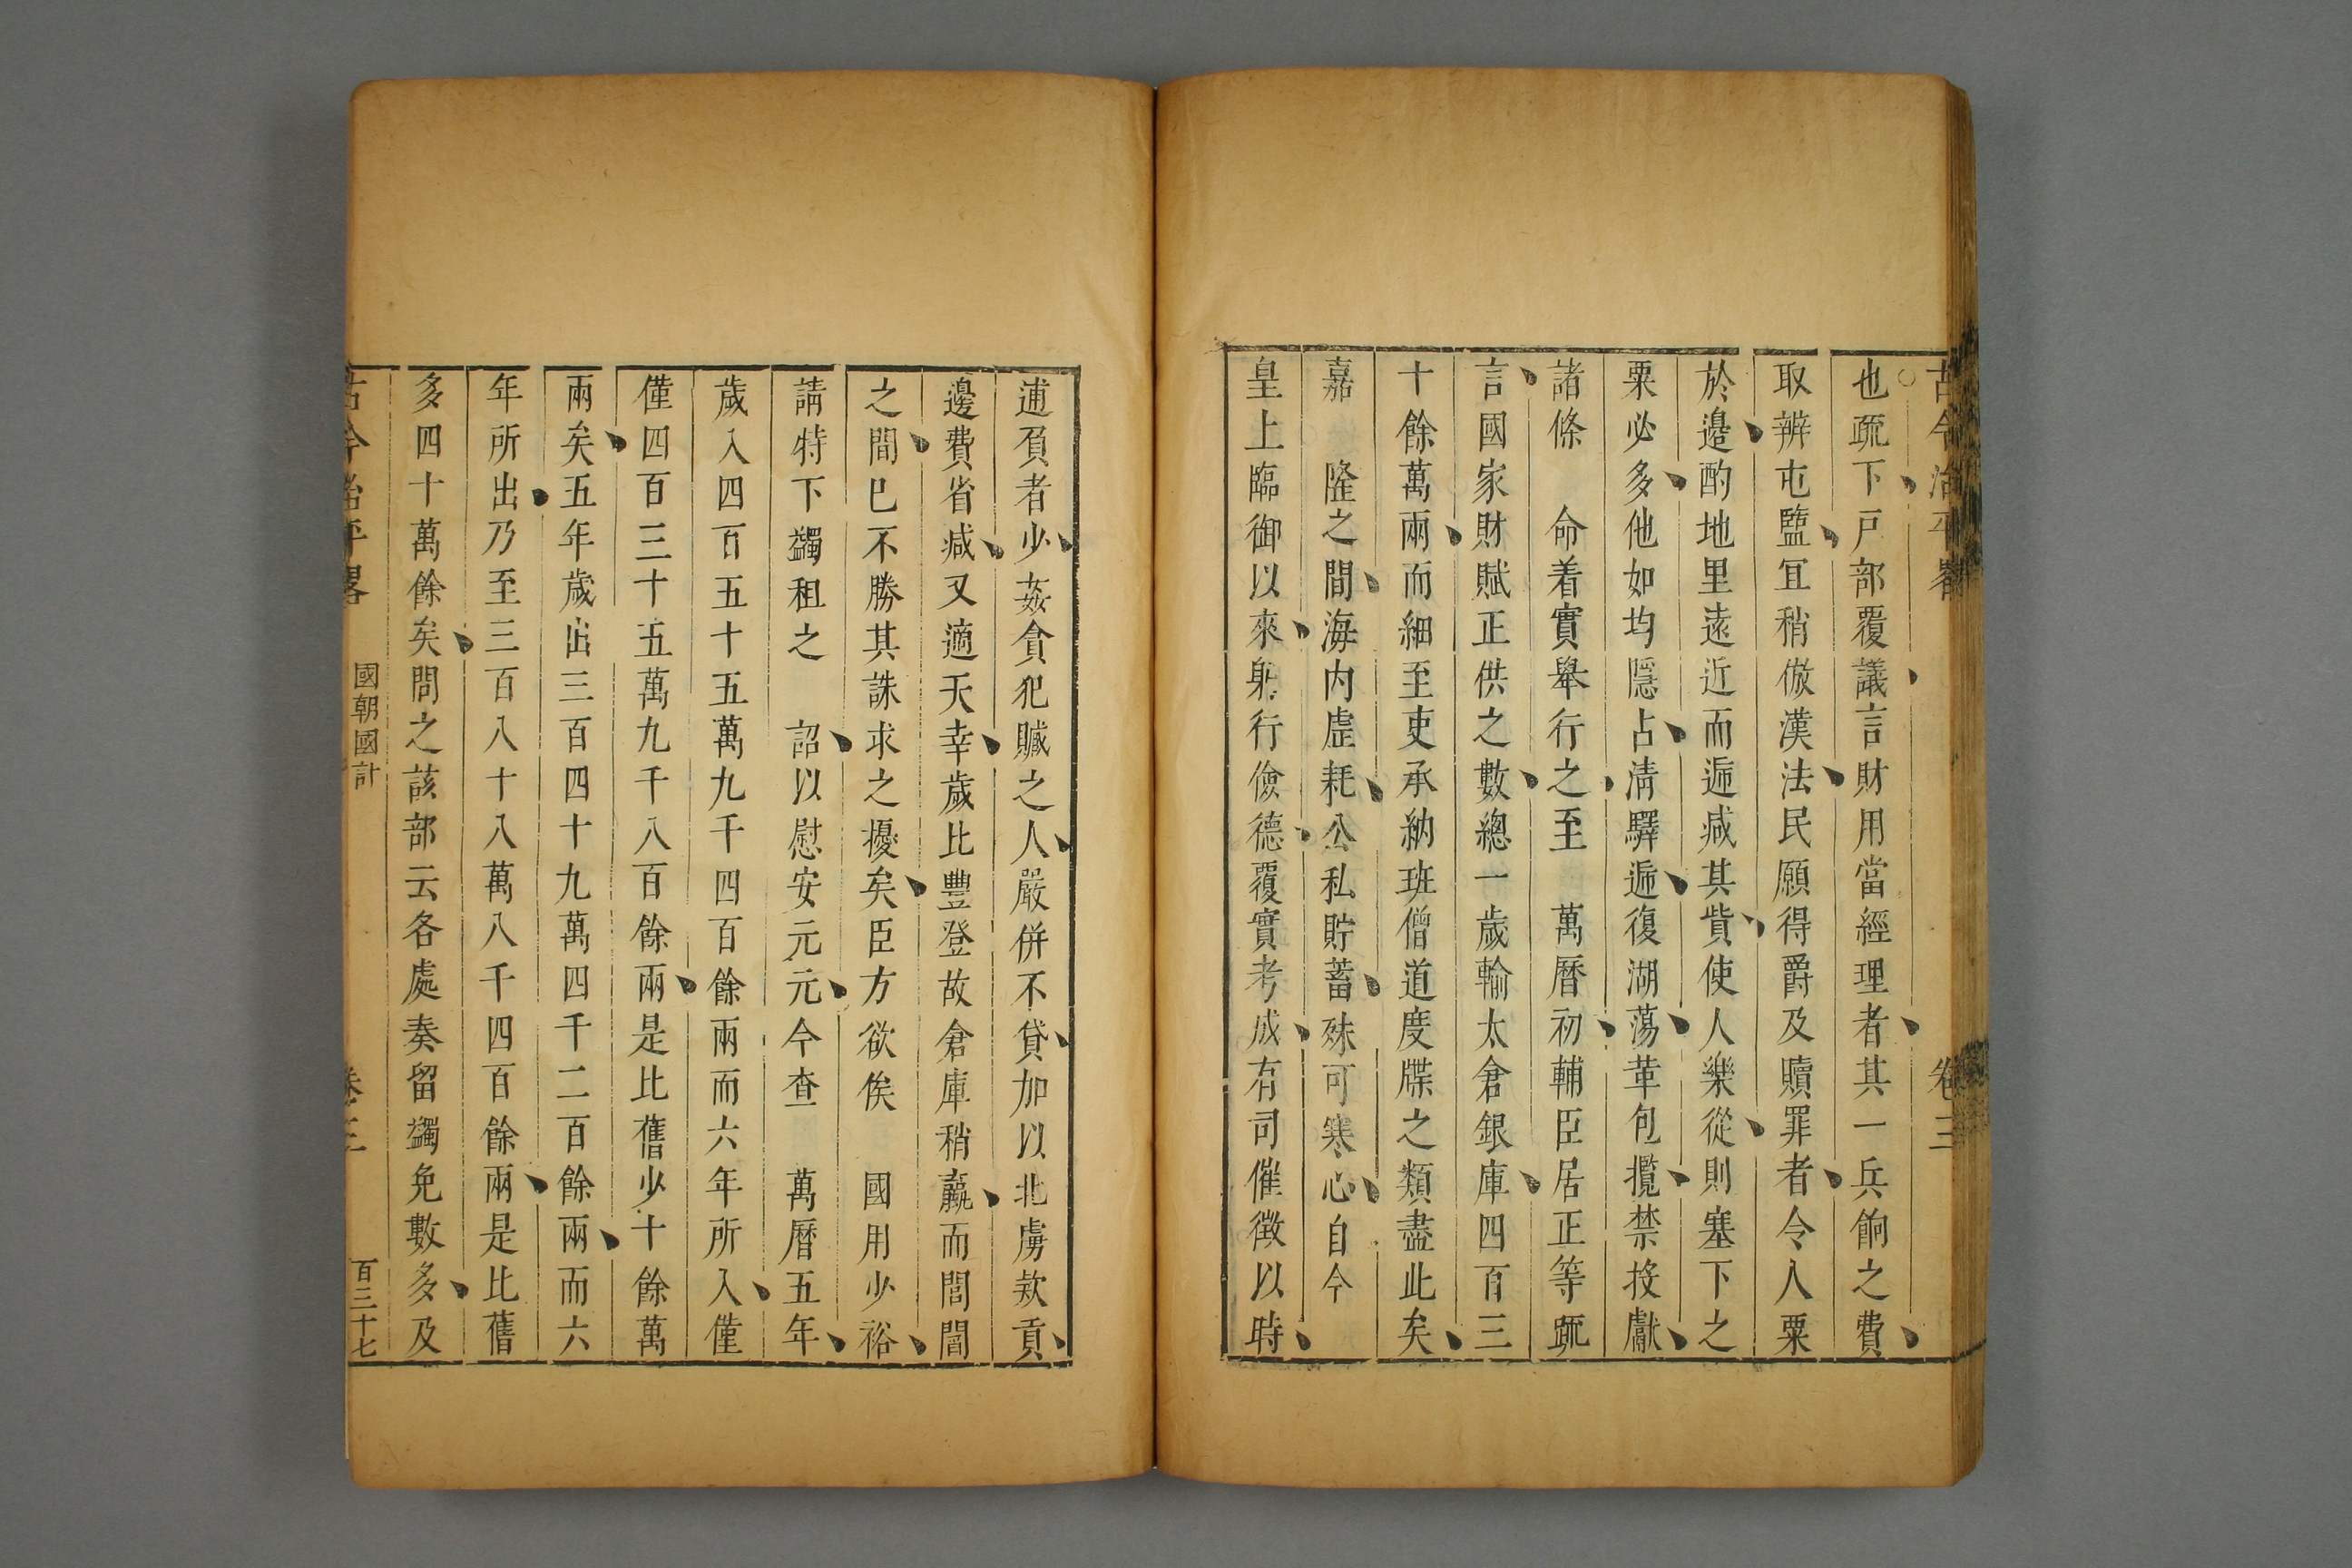 古今治平畧 卷三
也疏下戸部覆議言財用當經理者其一兵餉之費
取辦屯鹽宜稍倣漢法民願得爵及贖罪者令入粟
於邊酌地里遠近而遞减其貲使人樂從則塞下之
粟必多他如均隱占清驛遞復湖蕩革包攬禁投獻
諸條　命着實舉行之至　萬曆初輔臣居正等疏
言國家財賦正供之數總一歲輸太倉銀庫四百三
十餘萬兩而細至吏承納班僧道度牒之類盡此矣
嘉　隆之間海内虛耗公私貯蓄殊可寒心自今
皇上臨御以來躬行儉德覆實考成有司催徵以時
逋負者少姦貪犯贓之人嚴併不貸加以北虜欵貢
邊費省减又適天幸歲比豐登故倉庫稍贏而閭閻
之間已不勝其誅求之擾矣臣方欲俟　國用少裕
請特下蠲租之　詔以慰安元元今查　萬曆五年
歲入四百五十五萬九千四百餘兩而六年所入僅
僅四百三十五萬九千八百餘兩是比舊少十餘萬
兩矣五年歲出三百四十九萬四千二百餘兩而六
年所出乃至三百八十八萬八千四百餘兩是比舊
多四十萬餘矣問之該部云各處奏留蠲免數多及
古今治平畧 國朝國計 卷三 百三十七